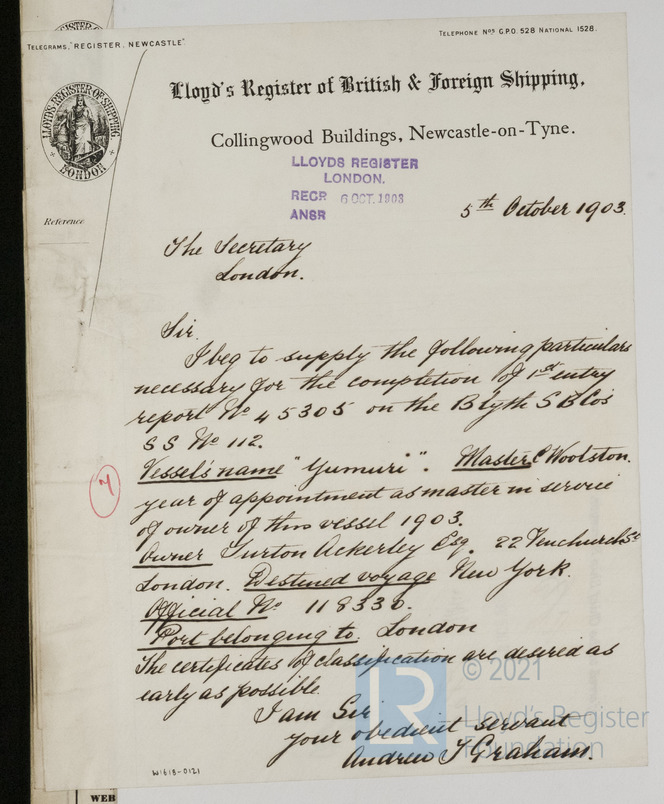 TELEGRAMS, "REGISTER, NEWCASTLE".
TELEPHONE Nos G.P.O. 528 NATIONAL 1528.
LLOYD'S REGISTER OF SHIPPING
LONDON
Lloyd's Register of British & Foreign Shipping,
Collingwood Buildings, Newcastle-on-Tyne.
LLOYDS REGISTER
LONDON.
RECD 6 OCT. 1903
ANSR
Reference
5th October 1903.
The Secretary
London.
Sir.
I beg to supply the following particulars
necessary for the completion of 1st entry
report No 45305 on the Blyth S B Cos
S S No 112.
Vessel's name "Yumuri". Master C Woolston.
year of appointment as master in service
of owner of this vessel 1903.
7
Owner Turton Ackerley Esq. 22 Fenchurch St
London. Destined voyage New York.
Official No 118330.
Port belonging to. London
The certificates of classification are desired as
early as possible.
I am Sir
your obedient servant
Andrew Graham.
© 2021
LR
Lloyd's Register
Foundation
W1618-0121
WEB